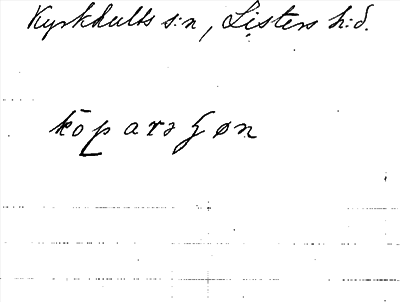 Kyrkhults s:n, Listers h:d.
kōparəʒøn